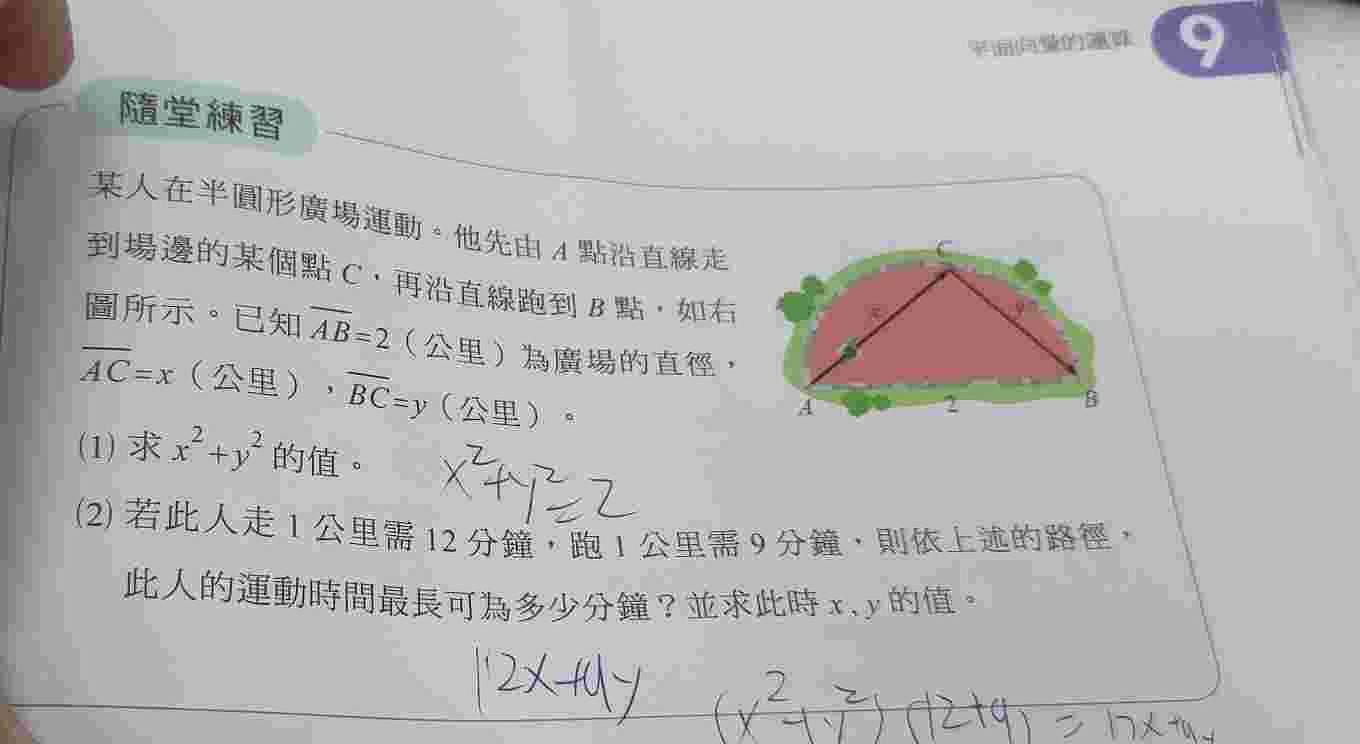 平面向量的運算
9
隨堂練習
某人在半圓形廣場運動。他先由 A 點沿直線走
到場邊的某個點 C,再沿直線跑到 B 點,如右
圖所示。已知 AB=2(公里)為廣場的直徑,
AC=x(公里),BC=y(公里)。
C
x
y
A
2
B
(1) 求 x²+y² 的值。
x²+y²=2
(2) 若此人走 1 公里需 12 分鐘,跑 1 公里需 9 分鐘,則依上述的路徑,
此人的運動時間最長可為多少分鐘?並求此時 x, y 的值。
12x+9y
(x²+y²)(12+9) =